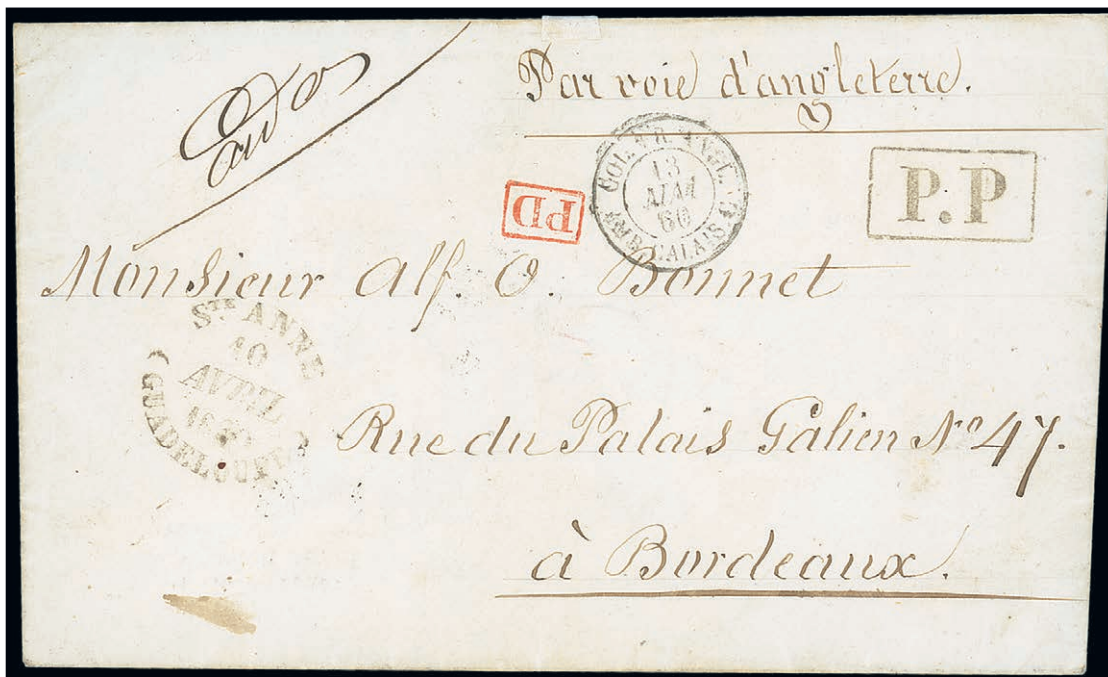 Par voie d'angleterre.
COL. FR. ANGL.
13
MAI
60
AMB. CALAIS C
P.P
PD
Monsieur Alf. O. Bonnet
STE ANNE
10
AVRIL
GUADELOUPE
Rue du Palais Galien No 47.
à Bordeaux.